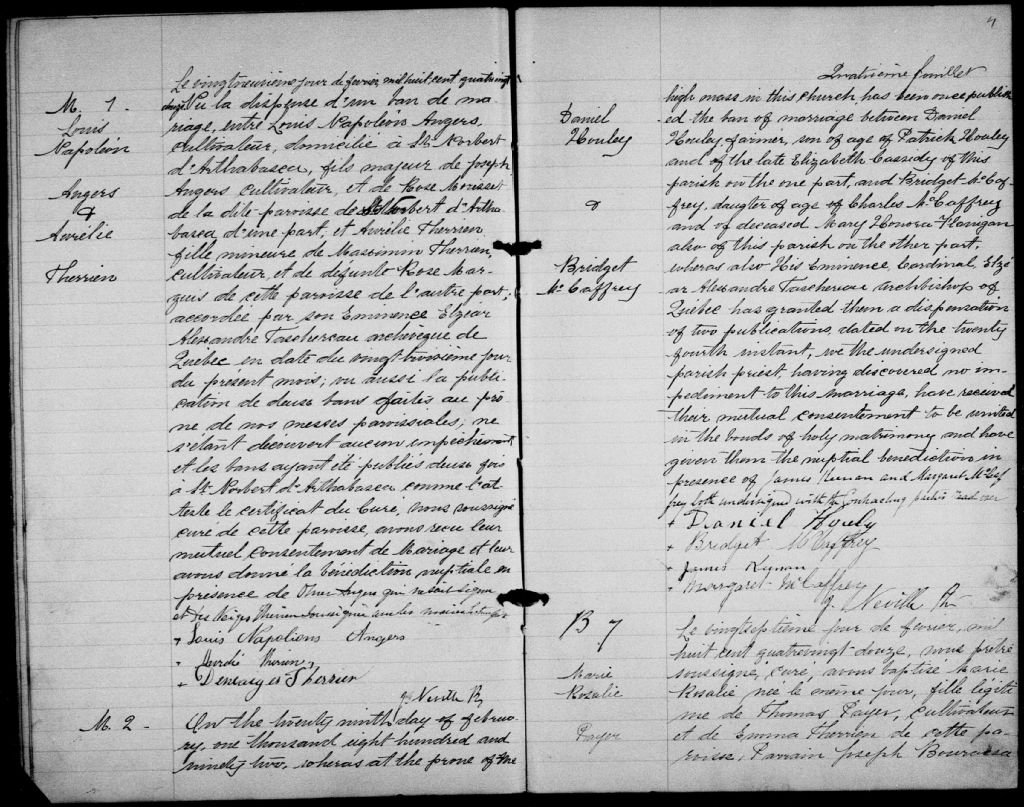 Le vingtneuvième jour de fevrier, mil huit cent quatrevingt
M. 1 -
Louis
Napoleon
Angers
&
Aurélie
Therrien
douze Vu la dispense d'un ban de ma-
riage, entre Louis Napoléon Angers,
cultivateur, domicilié à St Norbert
d'Arthabasca, fils majeur de Joseph
Angers cultivateur, et de Rose Mousset
de la dite paroisse de St Norbert d'Artha-
basca d'une part, et Aurélie Therrien
fille mineure de Maximin Therrien,
cultivateur, et de defunte Rose Mar-
quis de cette paroisse de l'autre part,
accordée par son Eminence Elzear
Alexandre Taschereau archevêque de
Quebec en date du vingt troisième jour
du présent mois; vu aussi la publi-
cation de deux bans faites au prô-
ne de nos messes paroissiales; ne
s'étant découvert aucun empêchement
et les bans ayant été publiés deux fois
à St Norbert d'Arthabasca comme l'at-
teste le certificat du Curé, nous soussigné
curé de cette paroisse, avons recu leur
mutuel consentement de Mariage et leur
avons donné la bénédiction nuptiale en
présence de Angers qui ne sait signer
et Des Neiges Therrien soussignée avec les
+ Louis Napoléons Angers
+ Aurelie Therien
+ Denearges Therrien
J. Neville Ptr
M. 2 -
On the twenty ninth day of februa-
ry, one thousand eight hundred and
ninety two, wheras at the prone of the
4
Quatrième feuillet
Daniel
Houley
&
Bridget
McCaffrey
high mass in this church has been once publish-
ed the ban of marriage between Daniel
Houley farmer, son of age of Patrick Houley
and of the late Elizabeth Cassody of this
parish on the one part, and Bridget McCaf-
frey, daugter of age of Charles McCaffrey
and of deceased Mary Honora Flanigan
also of this parish on the other part,
wheras also His Eminence, Cardinal, Elzé
ar Alexandre Taschereau archbishop of
Quebec has granted them a dispensation
of two publications, dated on the twenty
fourth instant, we the undersigned
parish priest, having discovered no im-
pediment to this marriage, have received
their mutual consentement to be united
in the bonds of holy matrimony and have
given them the nuptial benediction in
presence of James Kernan and Margaret McCaf
frey both undersigned with the contracting parties read over
+ Daniel Houly
+ Bridget McCaffrey
+ James Kernan
+ Margaret McCaffrey
J. Neville Ptr
B 7
Marie
Rosalie
Payer
Le vingtseptième jour de fevrier, mil
huit cent quatrevingt douze, nous prêtre
soussigné, curé, avons baptisé Marie
Rosalie née le onzème jour, fille légiti
me de Thomas Payer, cultivateur
et de Emma Therrien de cette pa-
roisse, Parrain Joseph Bourassa